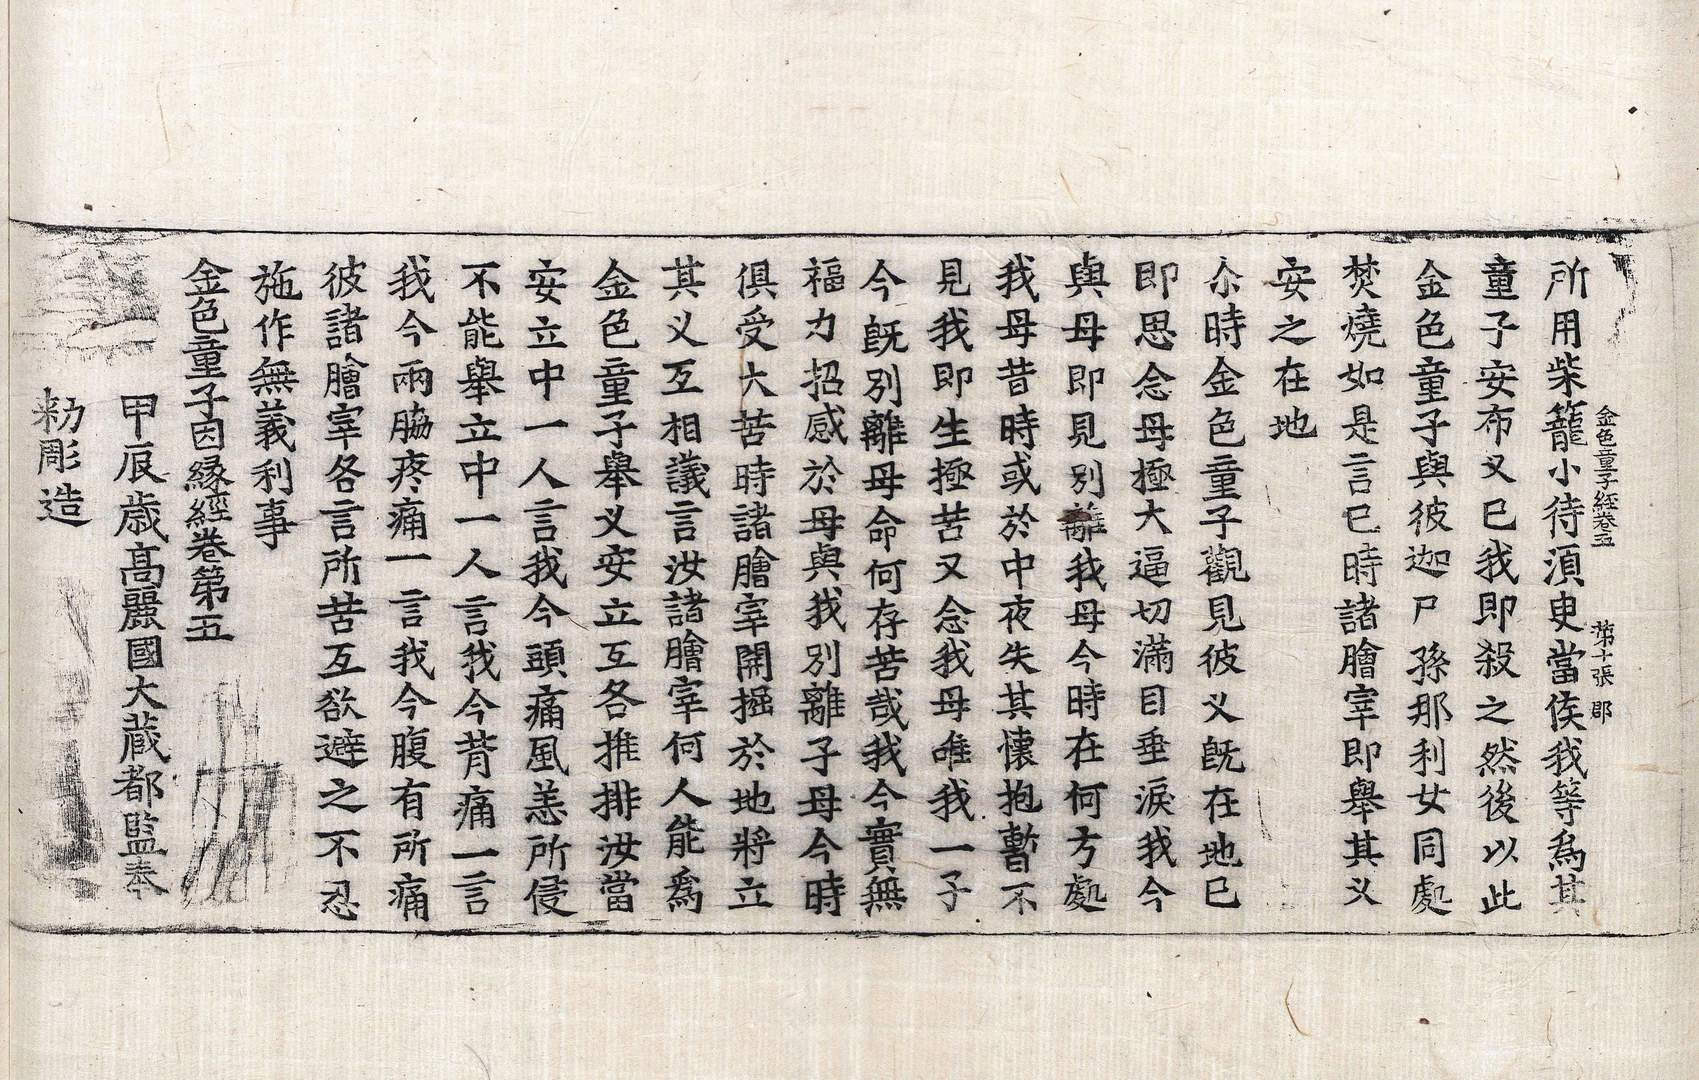 金色童子経巻五 第十張 郡
所用柴籠小待湏㬰當俟我等爲其
童子安布㐅已我即殺之然後以此
金色童子與彼迦尸孫那利女同處
焚燒如是言已時諸膾宰即舉其㐅
安之在地
尒時金色童子觀見彼㐅旣在地已
即思念母極大逼切滿目垂淚我今
與母即見別離我母今時在何方處
我母昔時或於中夜失其懷抱暫不
見我即生極苦又念我母唯我一子
今旣別離母命何存苦哉我今實無
福力招感於母與我別離子母今時
俱受大苦時諸膾宰開掘於地將立
其㐅互相議言汝諸膾宰何人能爲
金色童子舉㐅安立互各推排汝當
安立中一人言我今頭痛風恙所侵
不能舉立中一人言我今背痛一言
我今兩脇疼痛一言我今腹有所痛
彼諸膾宰各言所苦互欲避之不忍
施作無義利事
金色童子因緣經卷第五
甲辰歲高麗國大藏都監奉
勑彫造